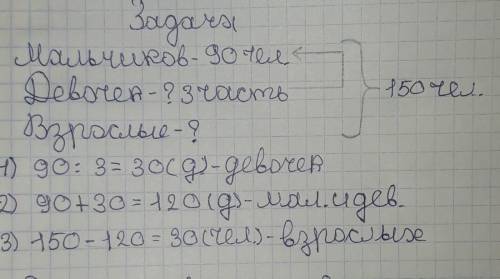 Задача
Мальчиков - 90 чел
Девочек - ? 3 часть
150 чел.
Взрослые - ?
1) 90 : 3 = 30 (д) - девочек
2) 90 + 30 = 120 (д) - мал. и дев.
3) 150 - 120 = 30 (чел) - взрослых